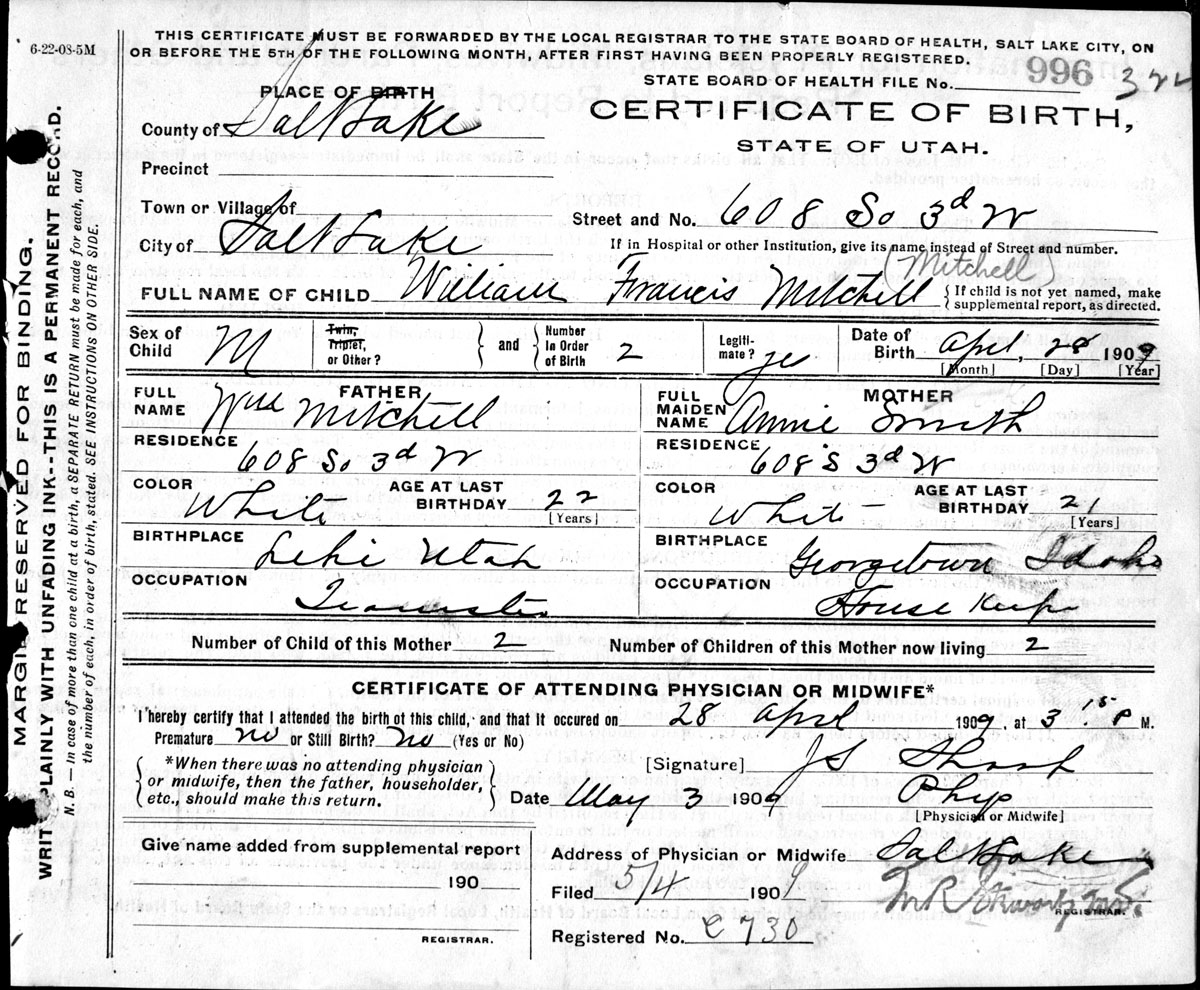 6-22-08-5M
THIS CERTIFICATE MUST BE FORWARDED BY THE LOCAL REGISTRAR TO THE STATE BOARD OF HEALTH, SALT LAKE CITY, ON
OR BEFORE THE 5TH OF THE FOLLOWING MONTH, AFTER FIRST HAVING BEEN PROPERLY REGISTERED.
STATE BOARD OF HEALTH FILE No. 996 322
PLACE OF BIRTH
CERTIFICATE OF BIRTH,
STATE OF UTAH.
County of Salt Lake
Precinct
Town or Village of
Street and No. 608 So 3d W
City of Salt Lake
If in Hospital or other Institution, give its name instead of Street and number.
(Mitchell)
FULL NAME OF CHILD William Francis Mitchell { If child is not yet named, make
supplemental report, as directed.
Sex of Child M
Twin, Triplet, or Other? } and { Number In Order of Birth 2
Legitimate? yes
Date of Birth April, 28 1909
[Month] [Day] [Year]
FATHER
FULL NAME Will Mitchell
RESIDENCE 608 So 3d W
COLOR White AGE AT LAST BIRTHDAY 22
[Years]
BIRTHPLACE Lehi Utah
OCCUPATION Teamster
MOTHER
FULL MAIDEN NAME Annie Smith
RESIDENCE 608 S 3d W
COLOR White AGE AT LAST BIRTHDAY 21
[Years]
BIRTHPLACE Georgetown Idaho
OCCUPATION House Keep
Number of Child of this Mother 2 Number of Children of this Mother now living 2
CERTIFICATE OF ATTENDING PHYSICIAN OR MIDWIFE*
I hereby certify that I attended the birth of this child, and that it occured on 28 April 1909 at 3 P M.
Premature no or Still Birth? no (Yes or No)
{ *When there was no attending physician
or midwife, then the father, householder,
etc., should make this return. }
[Signature] J S
Date May 3 1909 Phys
[Physician or Midwife]
Give name added from supplemental report
190
REGISTRAR.
Address of Physician or Midwife Salt Lake
Filed 5/4 1909
REGISTRAR.
Registered No. C 730
MARGIN RESERVED FOR BINDING.
WRITE PLAINLY WITH UNFADING INK--THIS IS A PERMANENT RECORD.
N. B. — In case of more than one child at a birth, a SEPARATE RETURN must be made for each, and
the number of each, in order of birth, stated. SEE INSTRUCTIONS ON OTHER SIDE.